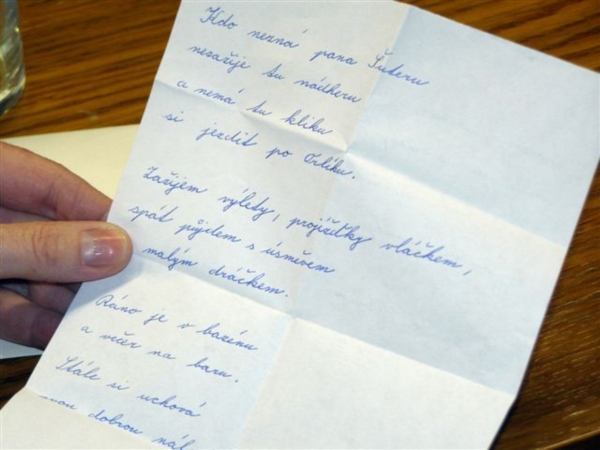 Kdo nezná pana Šuderu
nezažije tu nádheru
a nemá tu kliku
si jezdit po Orlíku.
Zažijem výlety, projížďky vláčkem,
spát půjdem s úsměvem
malým dráčkem.
Ráno je v bazénu
a večer na baru.
Stále si uchová
svou dobrou nál